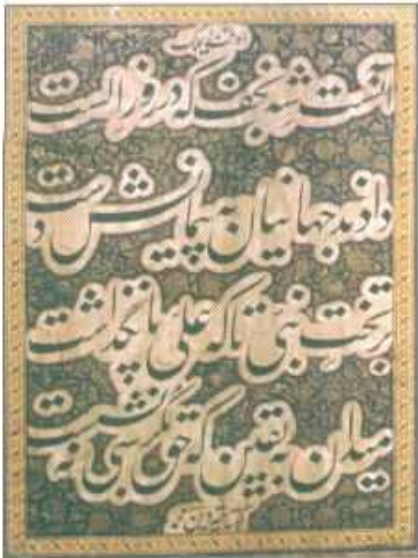 آنست شه نجف که در روز الست
دادند جهانیان به پیمانش دست
بر تخت نبی تا که علی پا نگذاشت
میدان به یقین که حق بکرسی ننشست